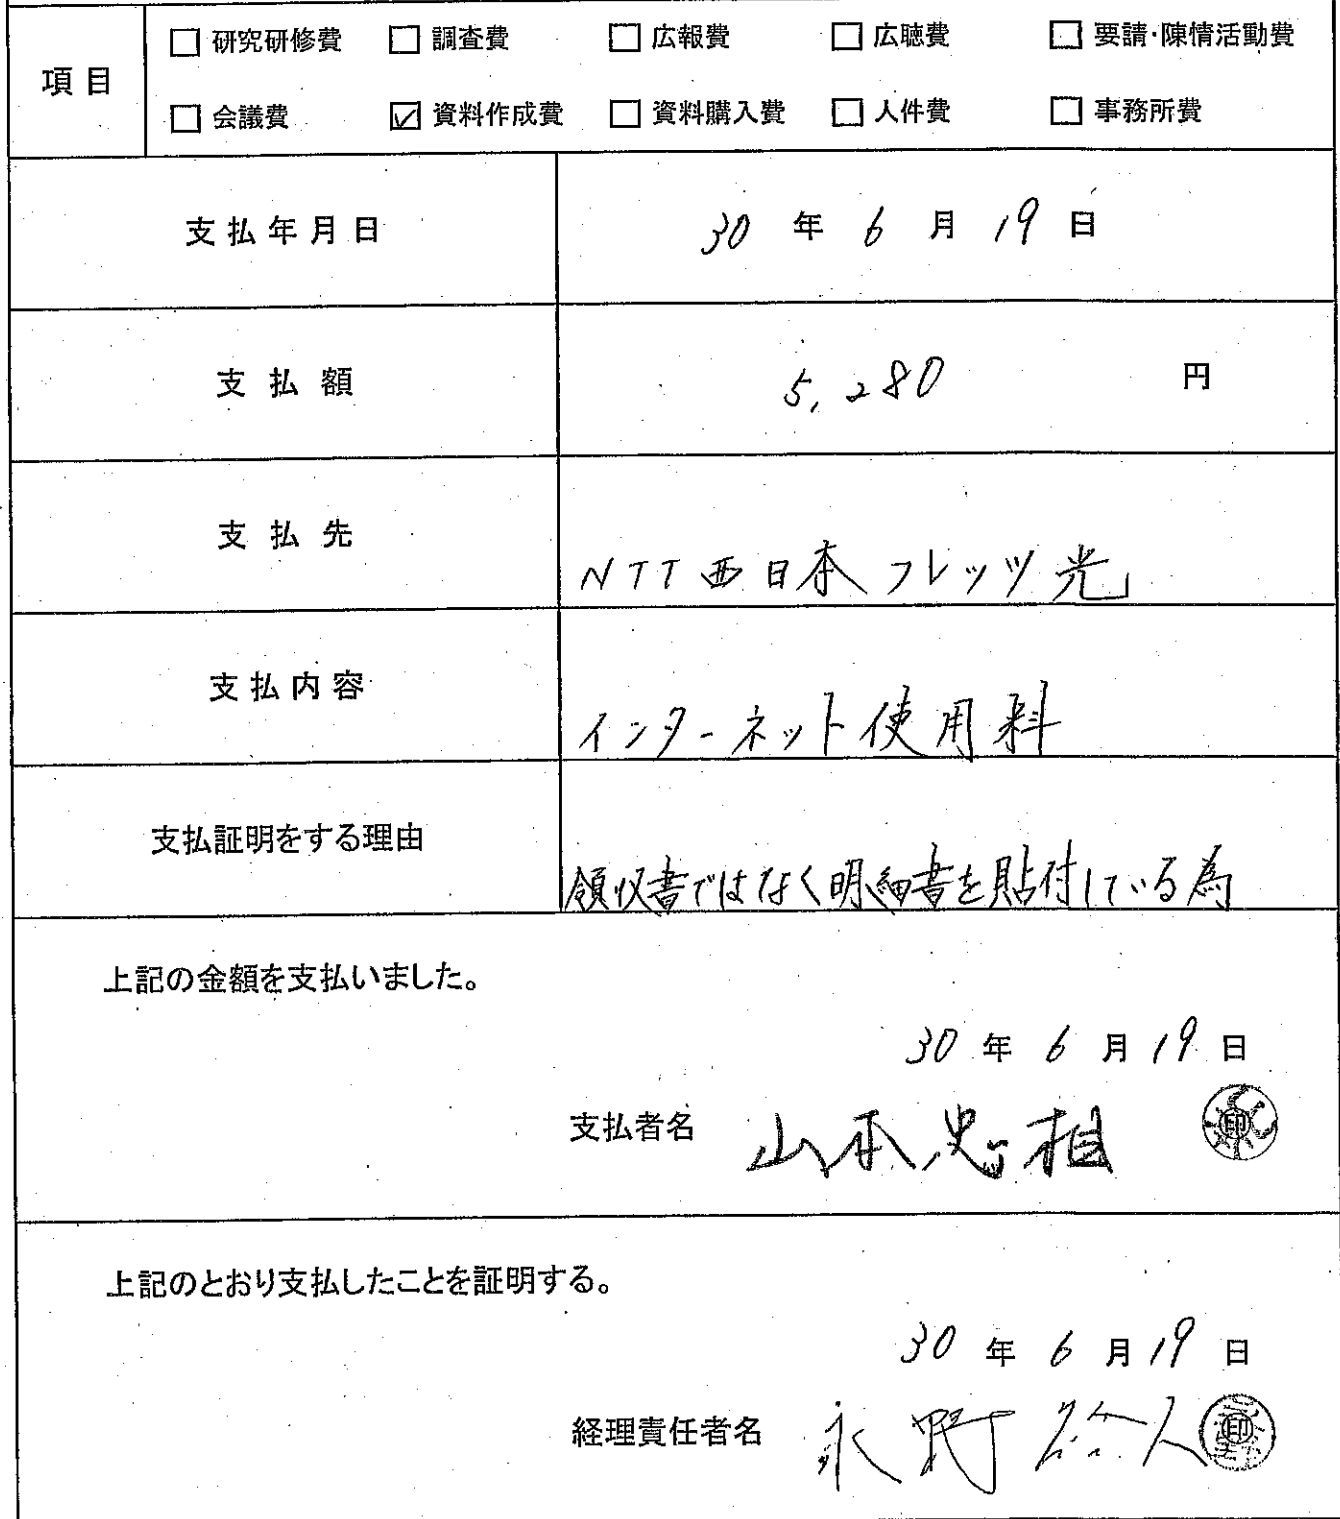 項目
□ 研究研修費 □ 調査費 □ 広報費 □ 広聴費 □ 要請・陳情活動費
□ 会議費 ☑ 資料作成費 □ 資料購入費 □ 人件費 □ 事務所費
支払年月日 30 年 6 月 19 日
支払額 5,280 円
支払先 NTT西日本フレッツ光」
支払内容 インターネット使用料
支払証明をする理由 領収書ではなく明細書を貼付している為
上記の金額を支払いました。
30 年 6 月 19 日
支払者名 山本忠相 印
上記のとおり支払したことを証明する。
30 年 6 月 19 日
経理責任者名 永野 人 印